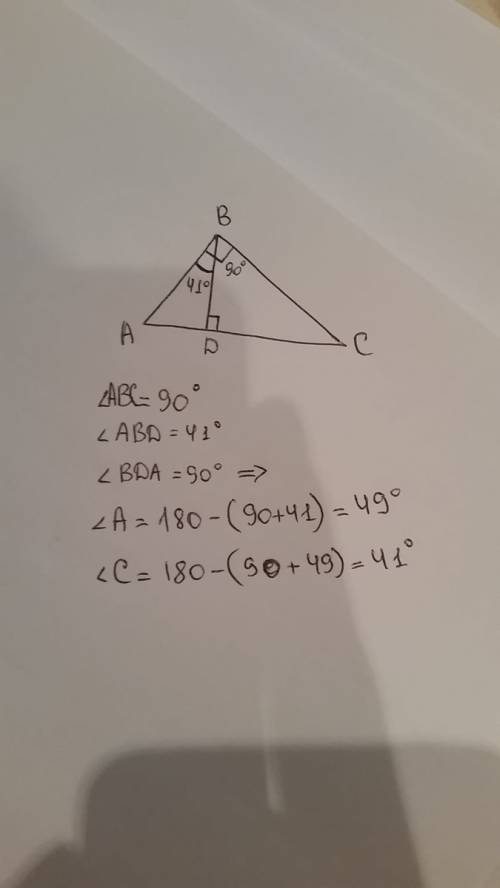 B
41° 90°
A D C
∠ABC = 90°
∠ABD = 41°
∠BDA = 90° ⇒
∠A = 180 - (90+41) = 49°
∠C = 180 - (90 + 49) = 41°